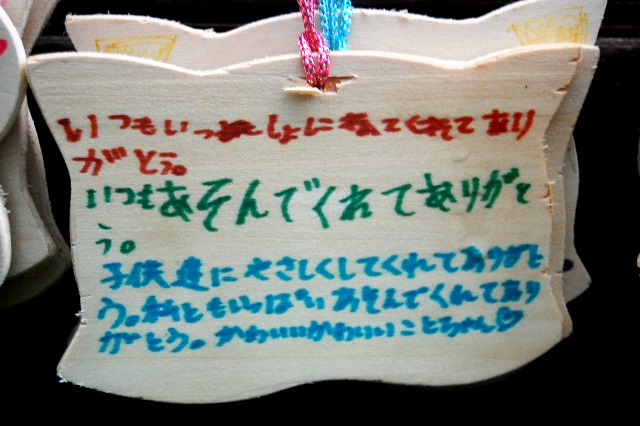 いつもいっしょにねてくれてあり
がとう。
いつもあそんでくれてありがと
う。
子供達にやさしくしてくれてありがと
う。私ともいっぱいあそんでくれてあり
がとう。かわいいかわいいことちゃん♡